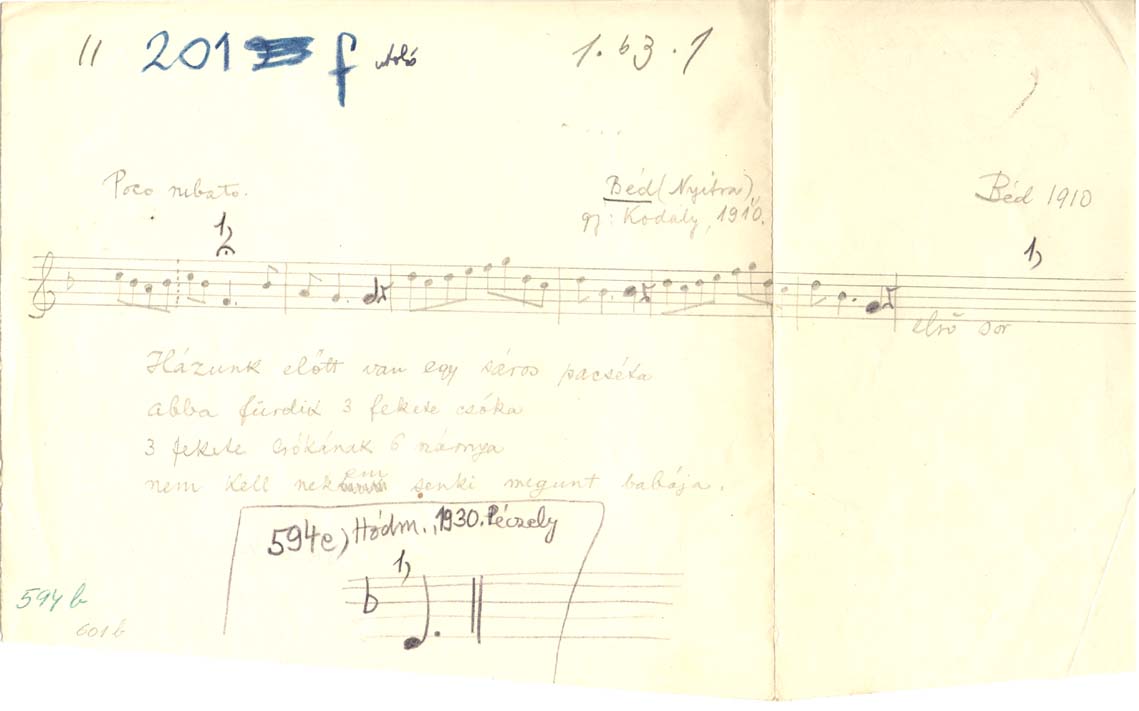 11 201 f utolsó 1.63.1
Poco rubato.
Béd (Nyitra),
gy: Kodály, 1910.
Béd 1910
1,
1,
első sor
Házunk előtt van egy sáros pacséta
abba fürdik 3 fekete csóka
3 fekete csókának 6 szárnya
nem kell nekem senki megunt babája.
594e) Hódm., 1930. Péczely
1,
594 b
601 b